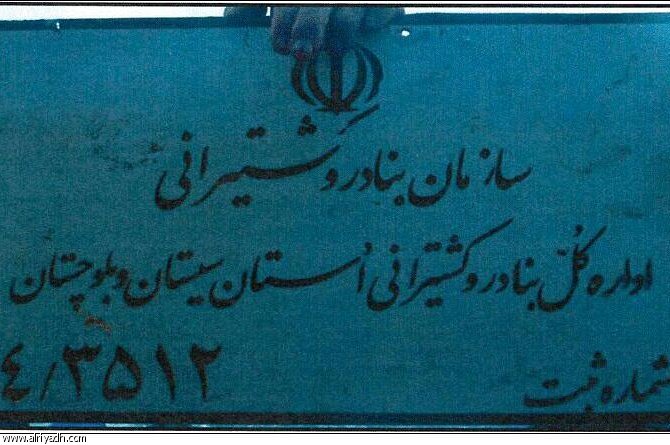 سازمان بنادر و کشتیرانی
اداره کُلّ بنادر و کشتیرانی اُستان سیستان و بلوچستان
شماره ثبت
٤/٣٥١٢
www.alriyadh.com